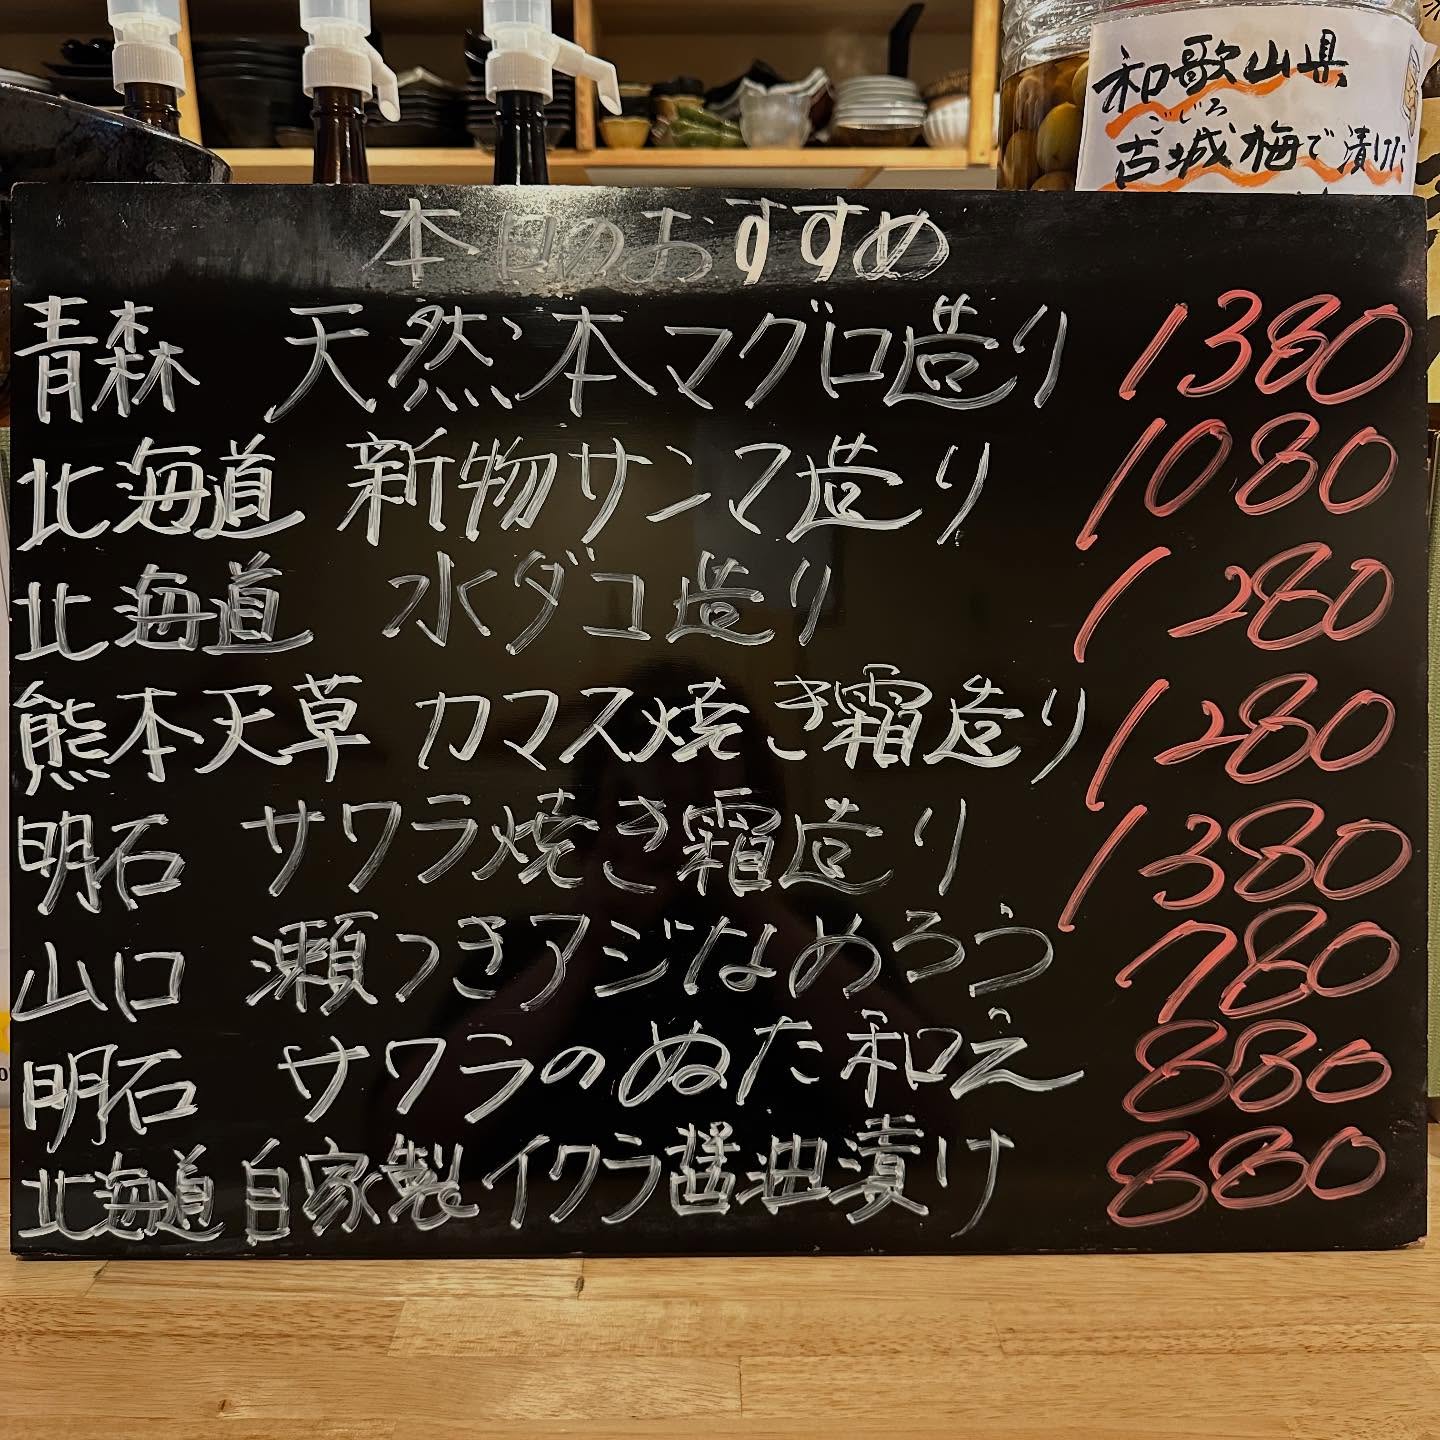 和歌山県
ごじろ
古城梅で漬けた
本日のおすすめ
青森 天然本マグロ造り 1380
北海道 新物サンマ造り 1080
北海道 水ダコ造り 1280
熊本天草 カマス焼き霜造り 1280
明石 サワラ焼き霜造り 1380
山口 瀬つきアジなめろう 780
明石 サワラのぬた和え 880
北海道 自家製イクラ醤油漬け 880